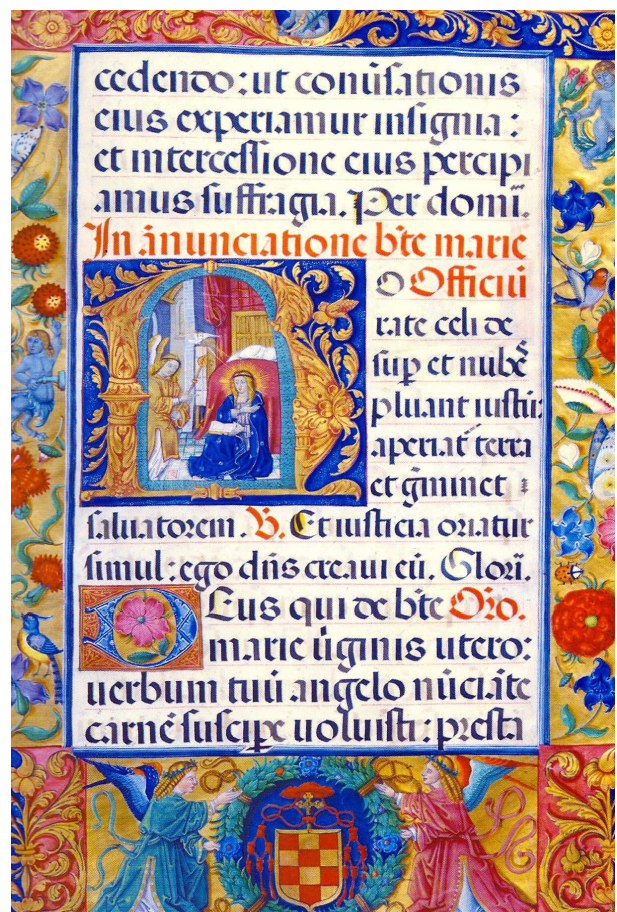 cedendo: ut conũsationis
eius experiamur insignia:
et intercessione eius percipi
amus suffragia. Per domĩ.
In ãnunciatione bẽte marie
O Officiũ
rate celi de
sup et nubẽs
pluant iustũ:
aperiat̃ terra
et g̃minet
saluatorem. V. Et iusticia oriatur
simul: ego dñs creaui eũ. Glorĩ.
DEus qui de bẽte Oro.
marie ũginis utero:
uerbum tuũ angelo nũciãte
carnẽ suscipe uoluisti: presta